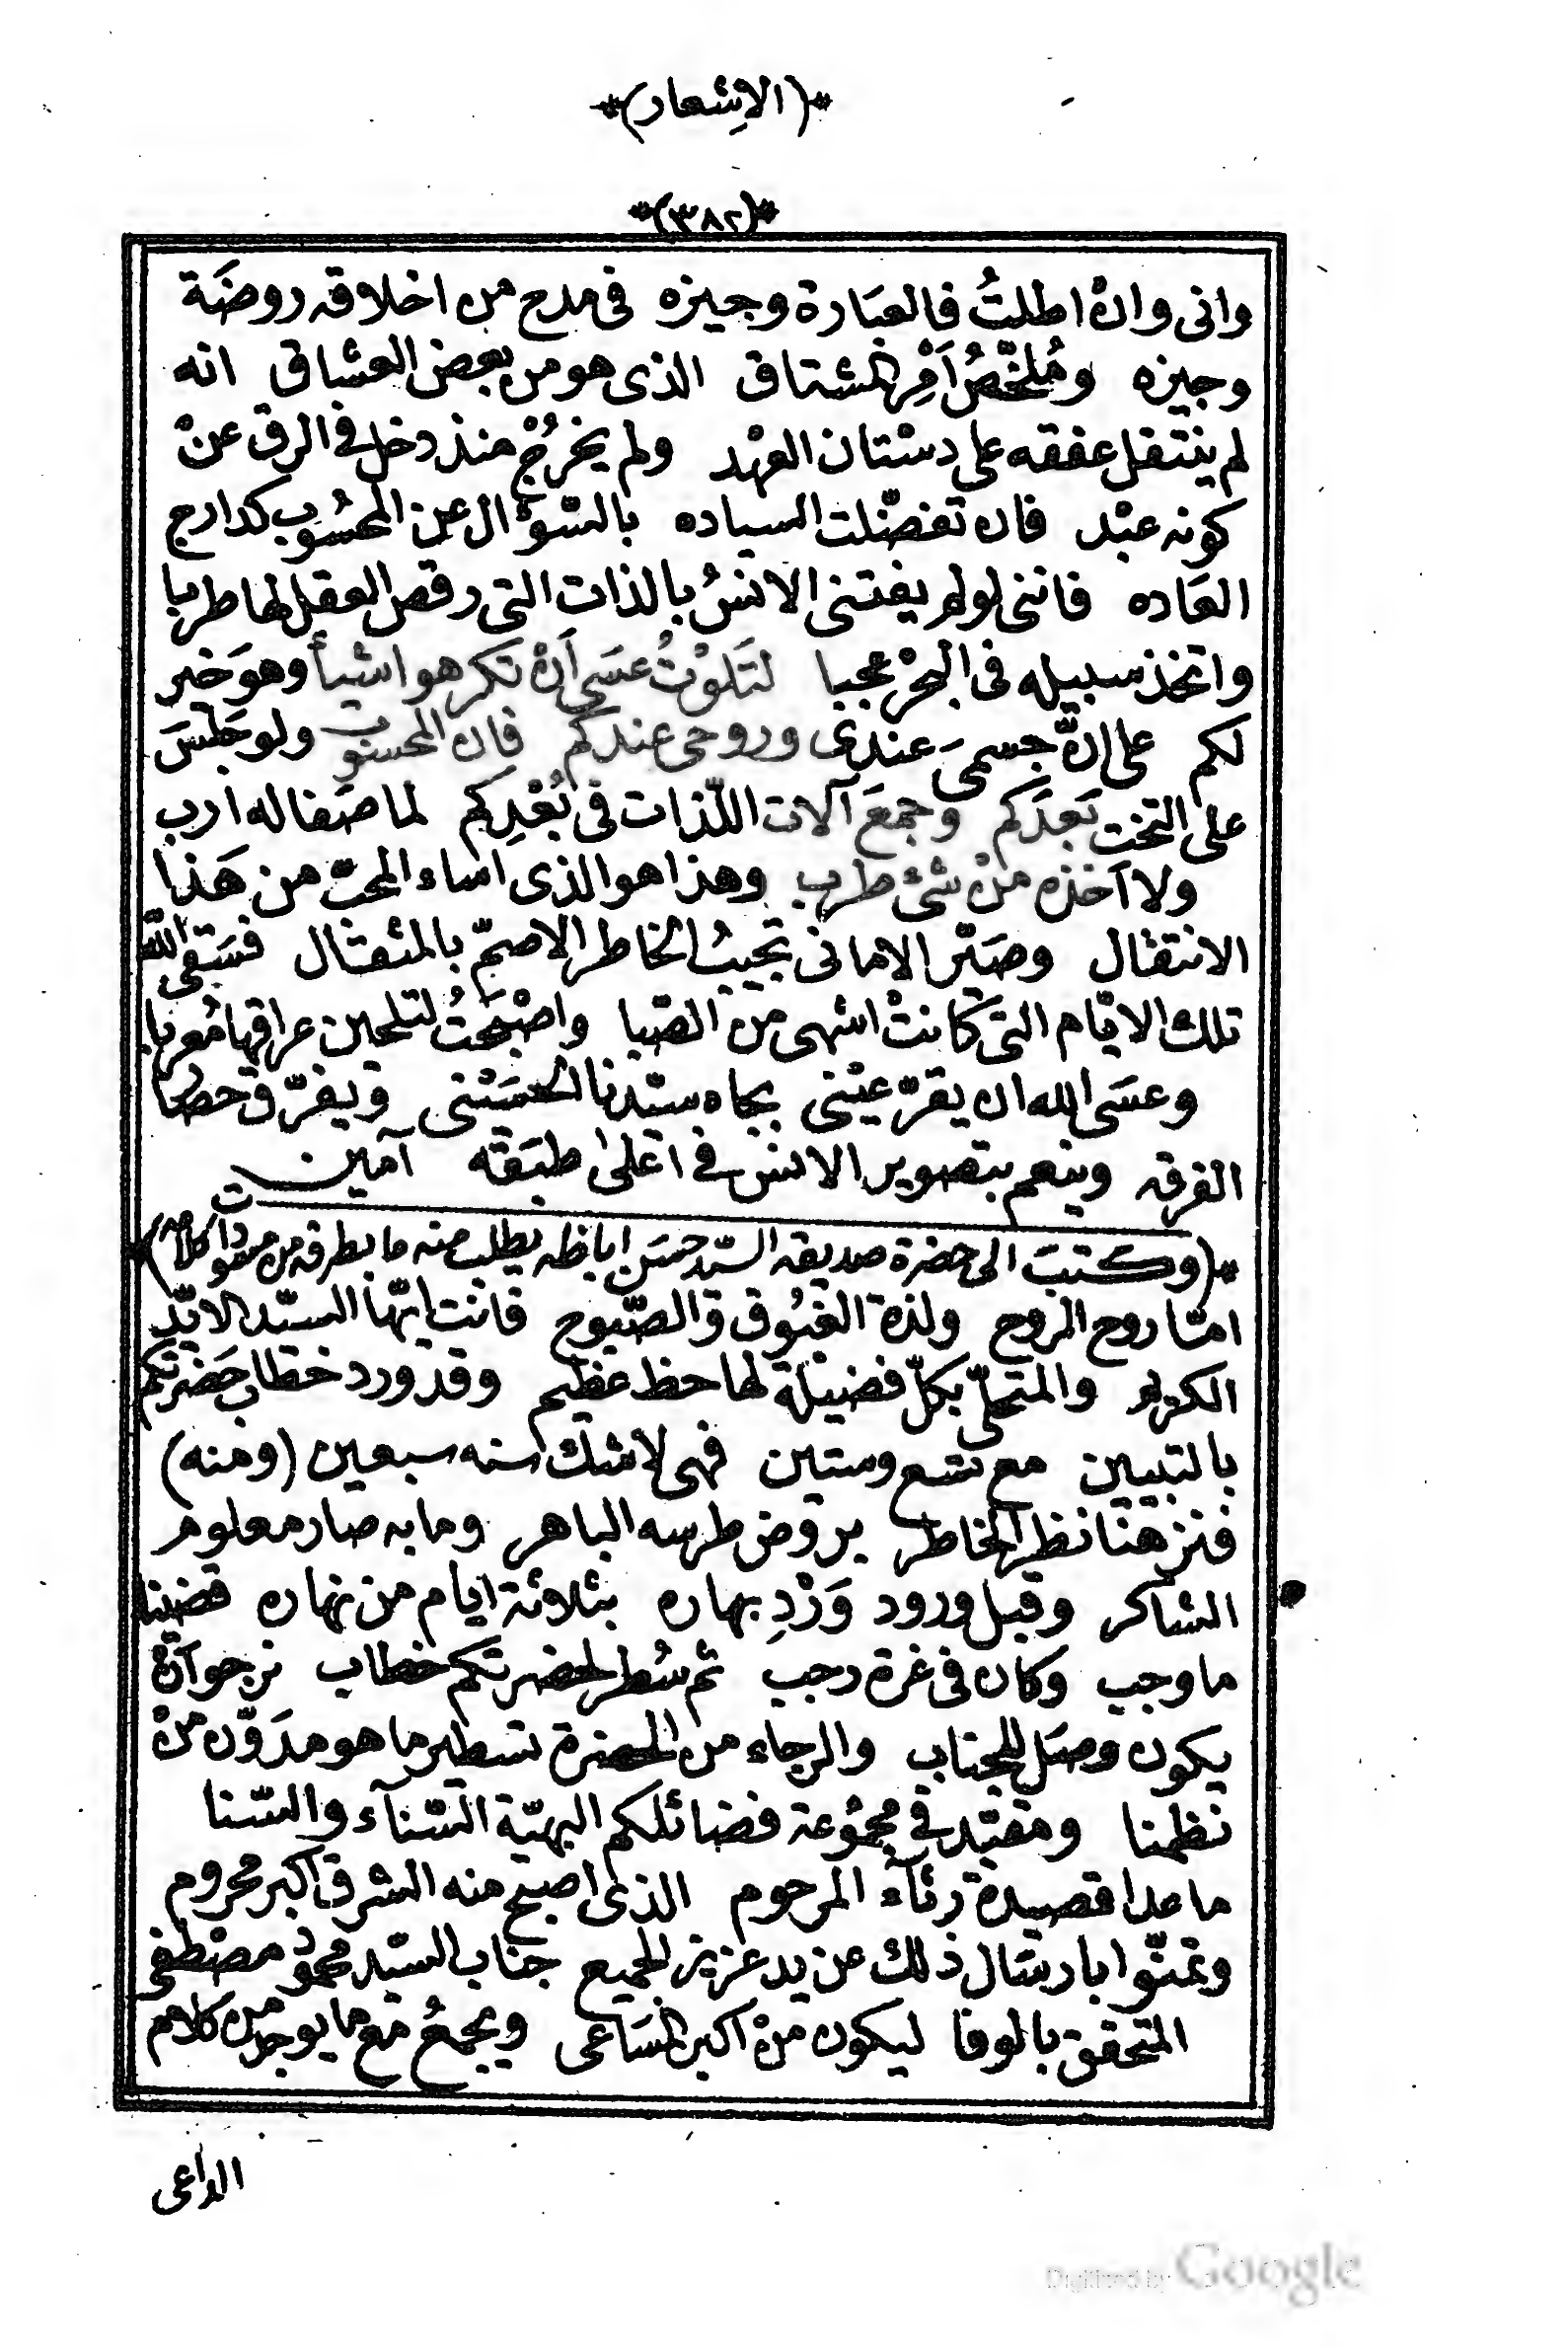 *(الإشعار)*
*(٣٨٢)*
وانى وانْ اطلتُ فالعبَارة وجيزه فى مدح من اخلاقه روضَة
وجيزه ومُلخّصُ اَمْرِ المشتاق الذى هو من بعض العشاق انه
لم ينتقل عفقه على دسْتان العهْد ولم يخرُجْ منذ دخل فى الرق عنْ
كونه عبْد فان تفضّلت السياده بالسّؤال عن المحسُوب كدارج
العَاده فاننى لو لم يفتنى الانسُ بالذات التى رقص العقل لها طربا
واتخذ سبيله فى البحْر عجبا لتَلوْتُ عسَى اَنْ تكرهوا شيأ وهوَ خير
لكم على انّ جسمىَ عندى وروحى عندكم فان المحسوب ولو جَلسَ
على التخت بَعدَكم وجمعَ آلات اللّذات فى بُعْدِكم لما صَفا له ارب
ولا اَخذه منْ شئ طرب وهذا هو الذى اساء المحبّ من هَذا
الانتقال وصَيّر الامانى تجيبُ الخاطر الاصمّ بالمثقال فسَقى الله
تلك الايّام التى كانتْ اشهى من الصّبا واصْبَحْتُ لتلحين عراقها مُعربا
وعسَى الله ان يقرّ عيْنى بجاه سيّدنا الحُسَيْنى ويفرّق حصَار
الفرقه وينعم بتصوير الانس فى اعْلىٰ طبَقَه آمين
*(وكتبَ الى حضرة صديقه السّيد حسَن اباظه يطلب منه ما بطرفه من مسودا كلامه)*
ت
امّا روح الروح ولذة الغبُوق وَالصّبوح فانت ايّها السيّد الايّد
الكريم والمتحلّى بكلّ فضيْلة لها حظ عظيم وقد ورد خطاب حَضرتكم
بالتبيين مع تسع وستين فهى لا شك سنه سبعين (ومنه)
فنزهنا نظر الخاطر بروض طرسه الباهر وما به صار معلوم
الشاكر وقبل ورود وَرْدِ بهاره بثلاثة ايام من نهاره قضينا
ما وجب وكان فى غرة رجب ثم سُطر لحضرتكم خطاب نرجو اَنْ
يكون وصَل للجناب والرجاء من الحضرة تسطير ما هو مدَوّن منْ
نظمنا ومقيّد فى مجمُوعة فضائلكم البهيّة السّنآء والسّنا
ما عدا قصيدة رثآء المرحوم الذى اصبح منه الشرق اكبر محروم
وتمنّوا بارسَال ذلك عن يد عزيز الجميع جناب السيّد محمود مصْطفى
المتحقق بالوفا ليكون منْ اكبر المسَاعى ويجمعُ معَ ما يوجد من كلام
الداعى
Digitized by Google